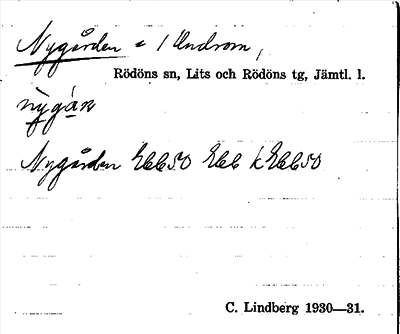 Nygården = 1 Undrom,
Rödöns sn, Lits och Rödöns tg, Jämtl. l.
nỳgàn
Nygården Ebb50 Ebb k Ebb50
C. Lindberg 1930—31.